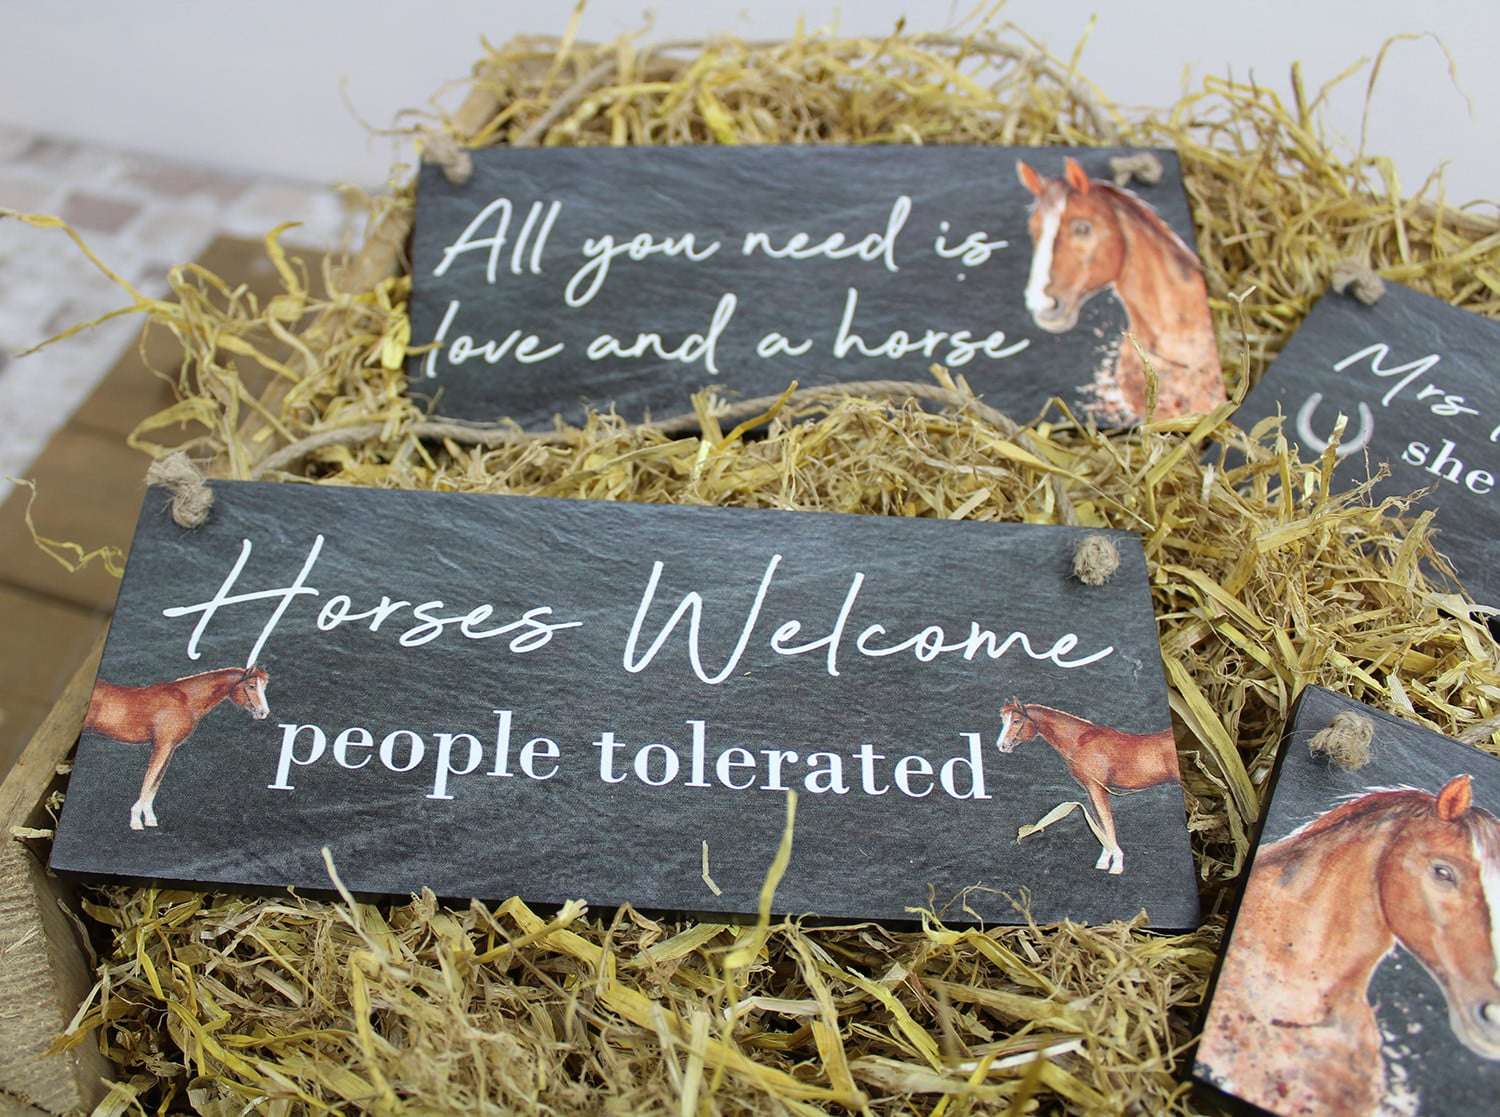 All you need is
love and a horse
Mrs
she
Horses Welcome
people tolerated